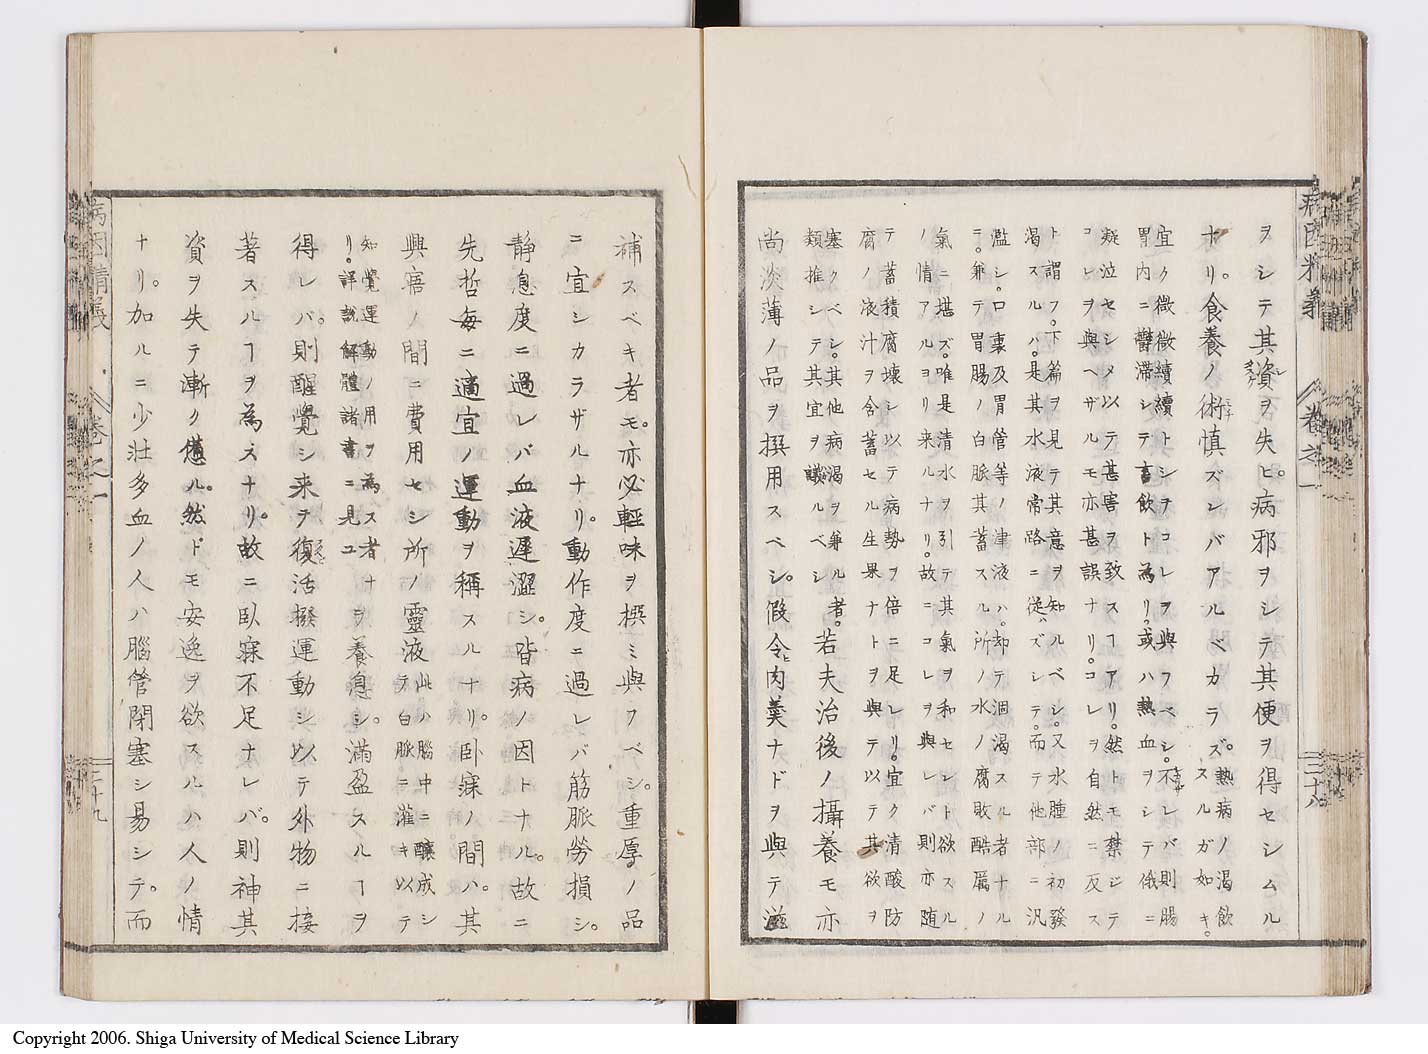 病因精義 卷之一 三十八
ヲシテ其資ヲ失ヒ。病邪ヲシテ其便ヲ得セシムル
ナリ。食養ノ術慎ズンバアルベカラズ。熱病ノ渇飲スルガ如キ。
宜ク微微續續トシテコレヲ與フベシ。不レバ則腸
胃内ニ欝滞シテ畜飲ト為リ。或ハ熱血ヲシテ俄ニ
凝泣セシメ以テ甚害ヲ致スヿアリ。然トモ禁ジテ
コレヲ與ヘザルモ亦甚誤ナリ。コレヲ自然ニ反ス
ト謂フ。下篇ヲ見テ其意ヲ知ルベシ。又水腫ノ初發
渇スルハ。是其水液常路ニ従ハズシテ。而テ他部ニ汎
濫シ。口裏及胃管等ノ津液ハ。却テ涸渇スル者ナル
テ。兼テ胃腸ノ白脈其蓄スル所ノ水ノ腐敗酷厲ノ
氣ニ堪ズ。唯是清水ヲ引テ其氣ヲ和セント欲スル
ノ情アルヨリ来ルナリ。故ニコレヲ與レバ則亦随
テ蓄積腐壊シ以テ病勢ヲ倍ニ足レリ。宜ク清酸防
腐ノ液汁ヲ含蓄セル生果ナトヲ與テ以テ其欲ヲ
塞クベシ。其他病渇ヲ兼ル者。
類推シテ其宜ヲ議ルベシ
若夫治後ノ攝養モ亦
尚淡薄ノ品ヲ撰用スベシ。假令ヒ肉羹ナドヲ與テ滋
補スベキ者モ。亦必輕味ヲ撰ミ與フベシ。重厚ノ品
ニ宜シカラザルナリ。動作度ニ過レバ筋脈勞損シ。
静息度ニ過レバ血液遅澀シ。皆病ノ因トナル。故ニ
先哲毎ニ適宜ノ運動ヲ稱スルナリ。卧寐ノ間ハ。其
興寤ノ間ニ費用セシ所ノ靈液
此ハ腦中ニ釀成シ
テ白脈ニ灌キ以テ
知覺運動ノ用ヲ為ス者ナ
リ。詳説解體諸書ニ見ユ
ヲ養息シ。滿盈スルヿヲ
得レバ。則醒覺シ来ヲ復活撥運動シ以テ外物ニ接
著スルヿヲ為スナリ。故ニ臥寐不足ナレバ。則神其
資ヲ失テ漸ク憊ル。然ドモ安逸ヲ欲スルハ人ノ情
ナリ。加ルニ少壮多血ノ人ハ腦管閉塞シ易シテ。而
病因精義 卷之一 三十九
Copyright 2006. Shiga University of Medical Science Library